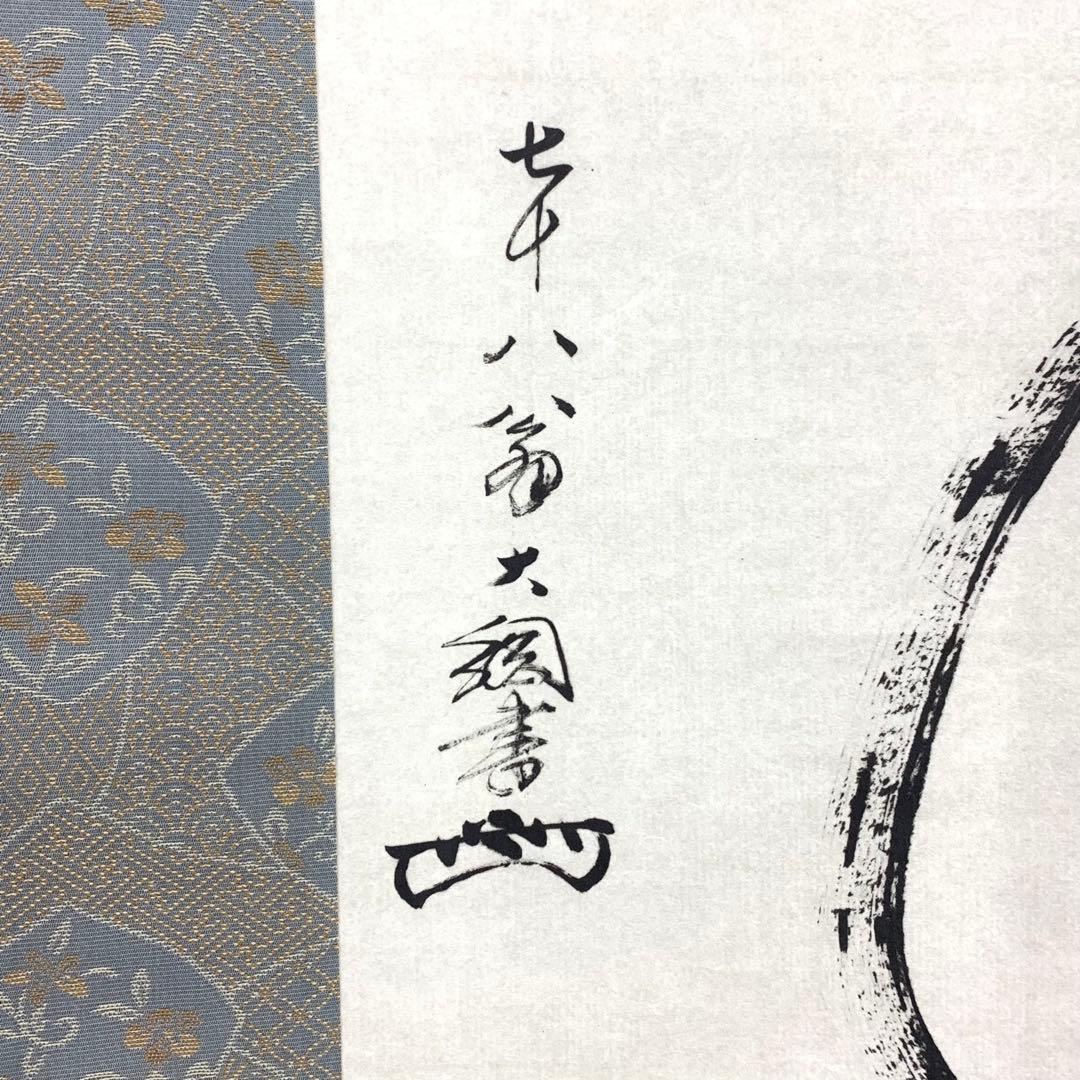 七十八翁大綱書